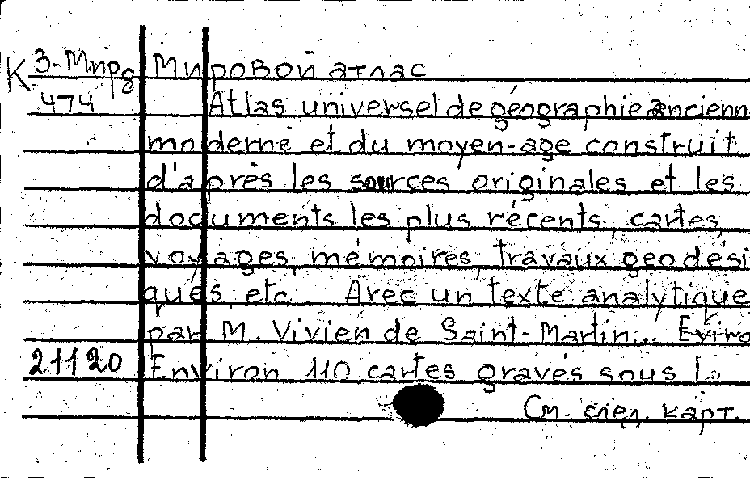 К 3-Мир8 Мировой атлас
474 Atlas universel de géographie ancienn
moderne et du moyen-age construit
d'après les sources originales et les
documents les plus récents, cartes,
voyages, mémoires, travaux geodési
qués, etc. Avec un texte analytique
par M. Vivien de Saint-Martin... Eviro
21120 Environ 110 cartes gravés sous l.
См. след. карт.